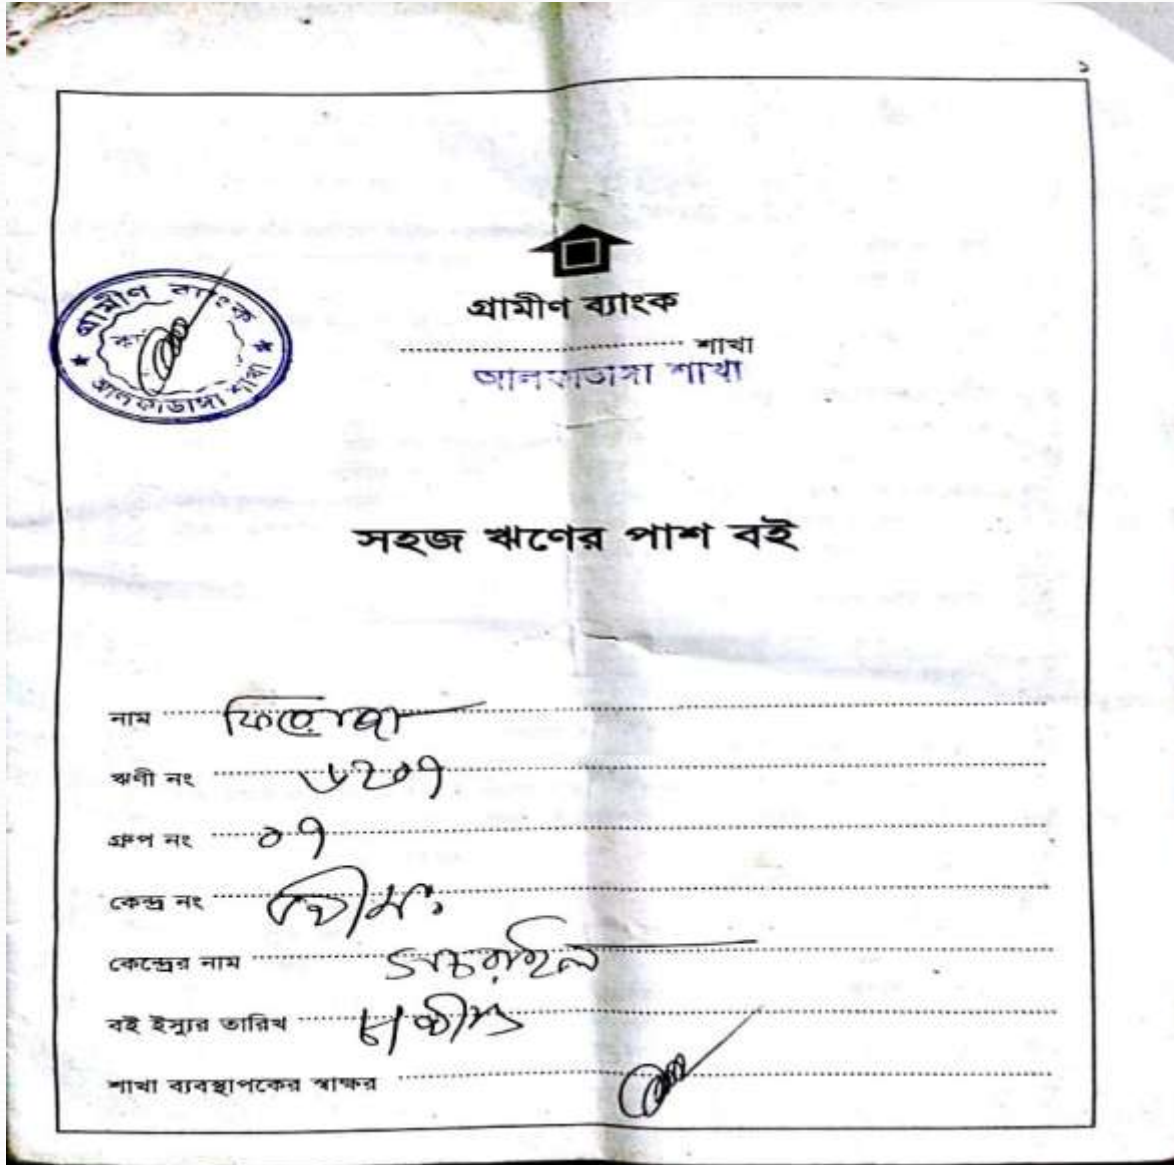 ১
গ্রামীণ ব্যাংক
শাখা
আলফাডাঙ্গা শাখা
গ্রামীণ ব্যাংক
আলফাডাঙ্গা শাখা
সহজ ঋণের পাশ বই
নাম ফিরোজা
ঋণী নং ৬২০৭
গ্রুপ নং ০৭
কেন্দ্র নং
কেন্দ্রের নাম
বই ইস্যুর তারিখ
শাখা ব্যবস্থাপকের স্বাক্ষর